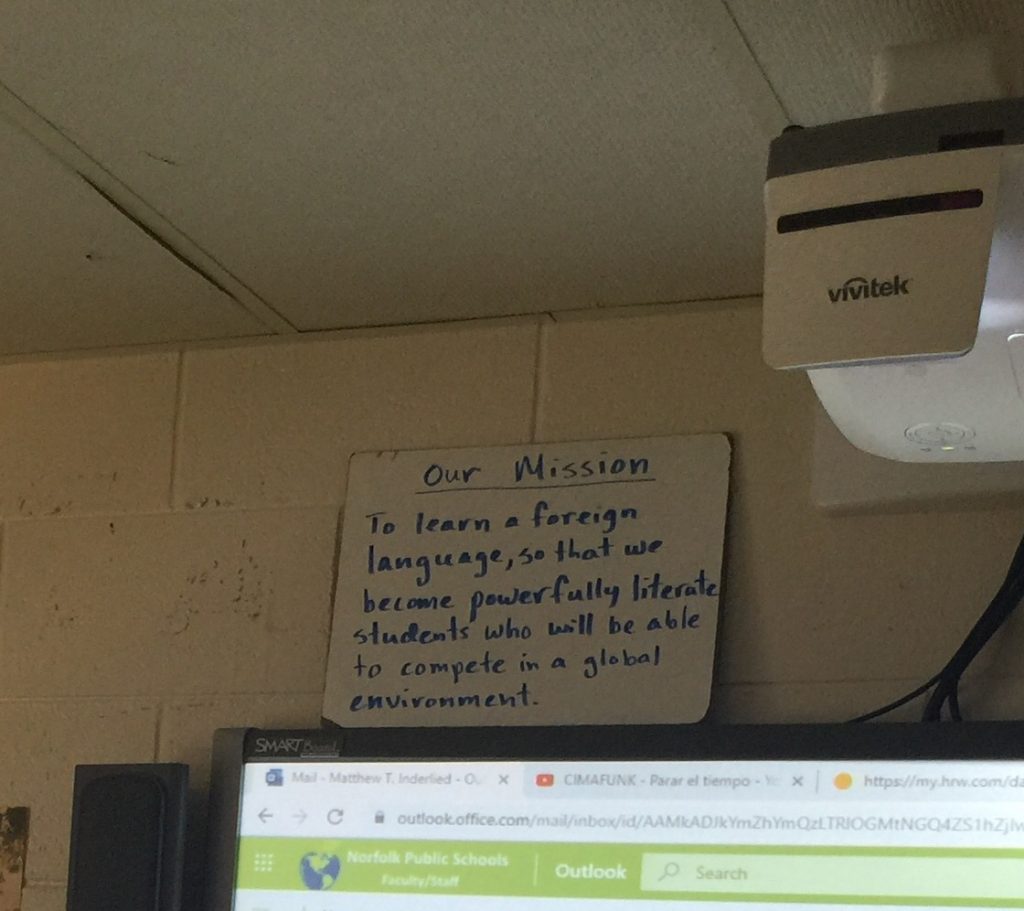 vivitek
Our Mission
To learn a foreign
language, so that we
become powerfully literate
students who will be able
to compete in a global
environment.
SMART Board
Mail - Matthew T. Inderlied - O
CIMAFUNK - Parar el tiempo - Yo
https://my.hrw.com/da
Norfolk Public Schools
Faculty/Staff
Outlook
Search